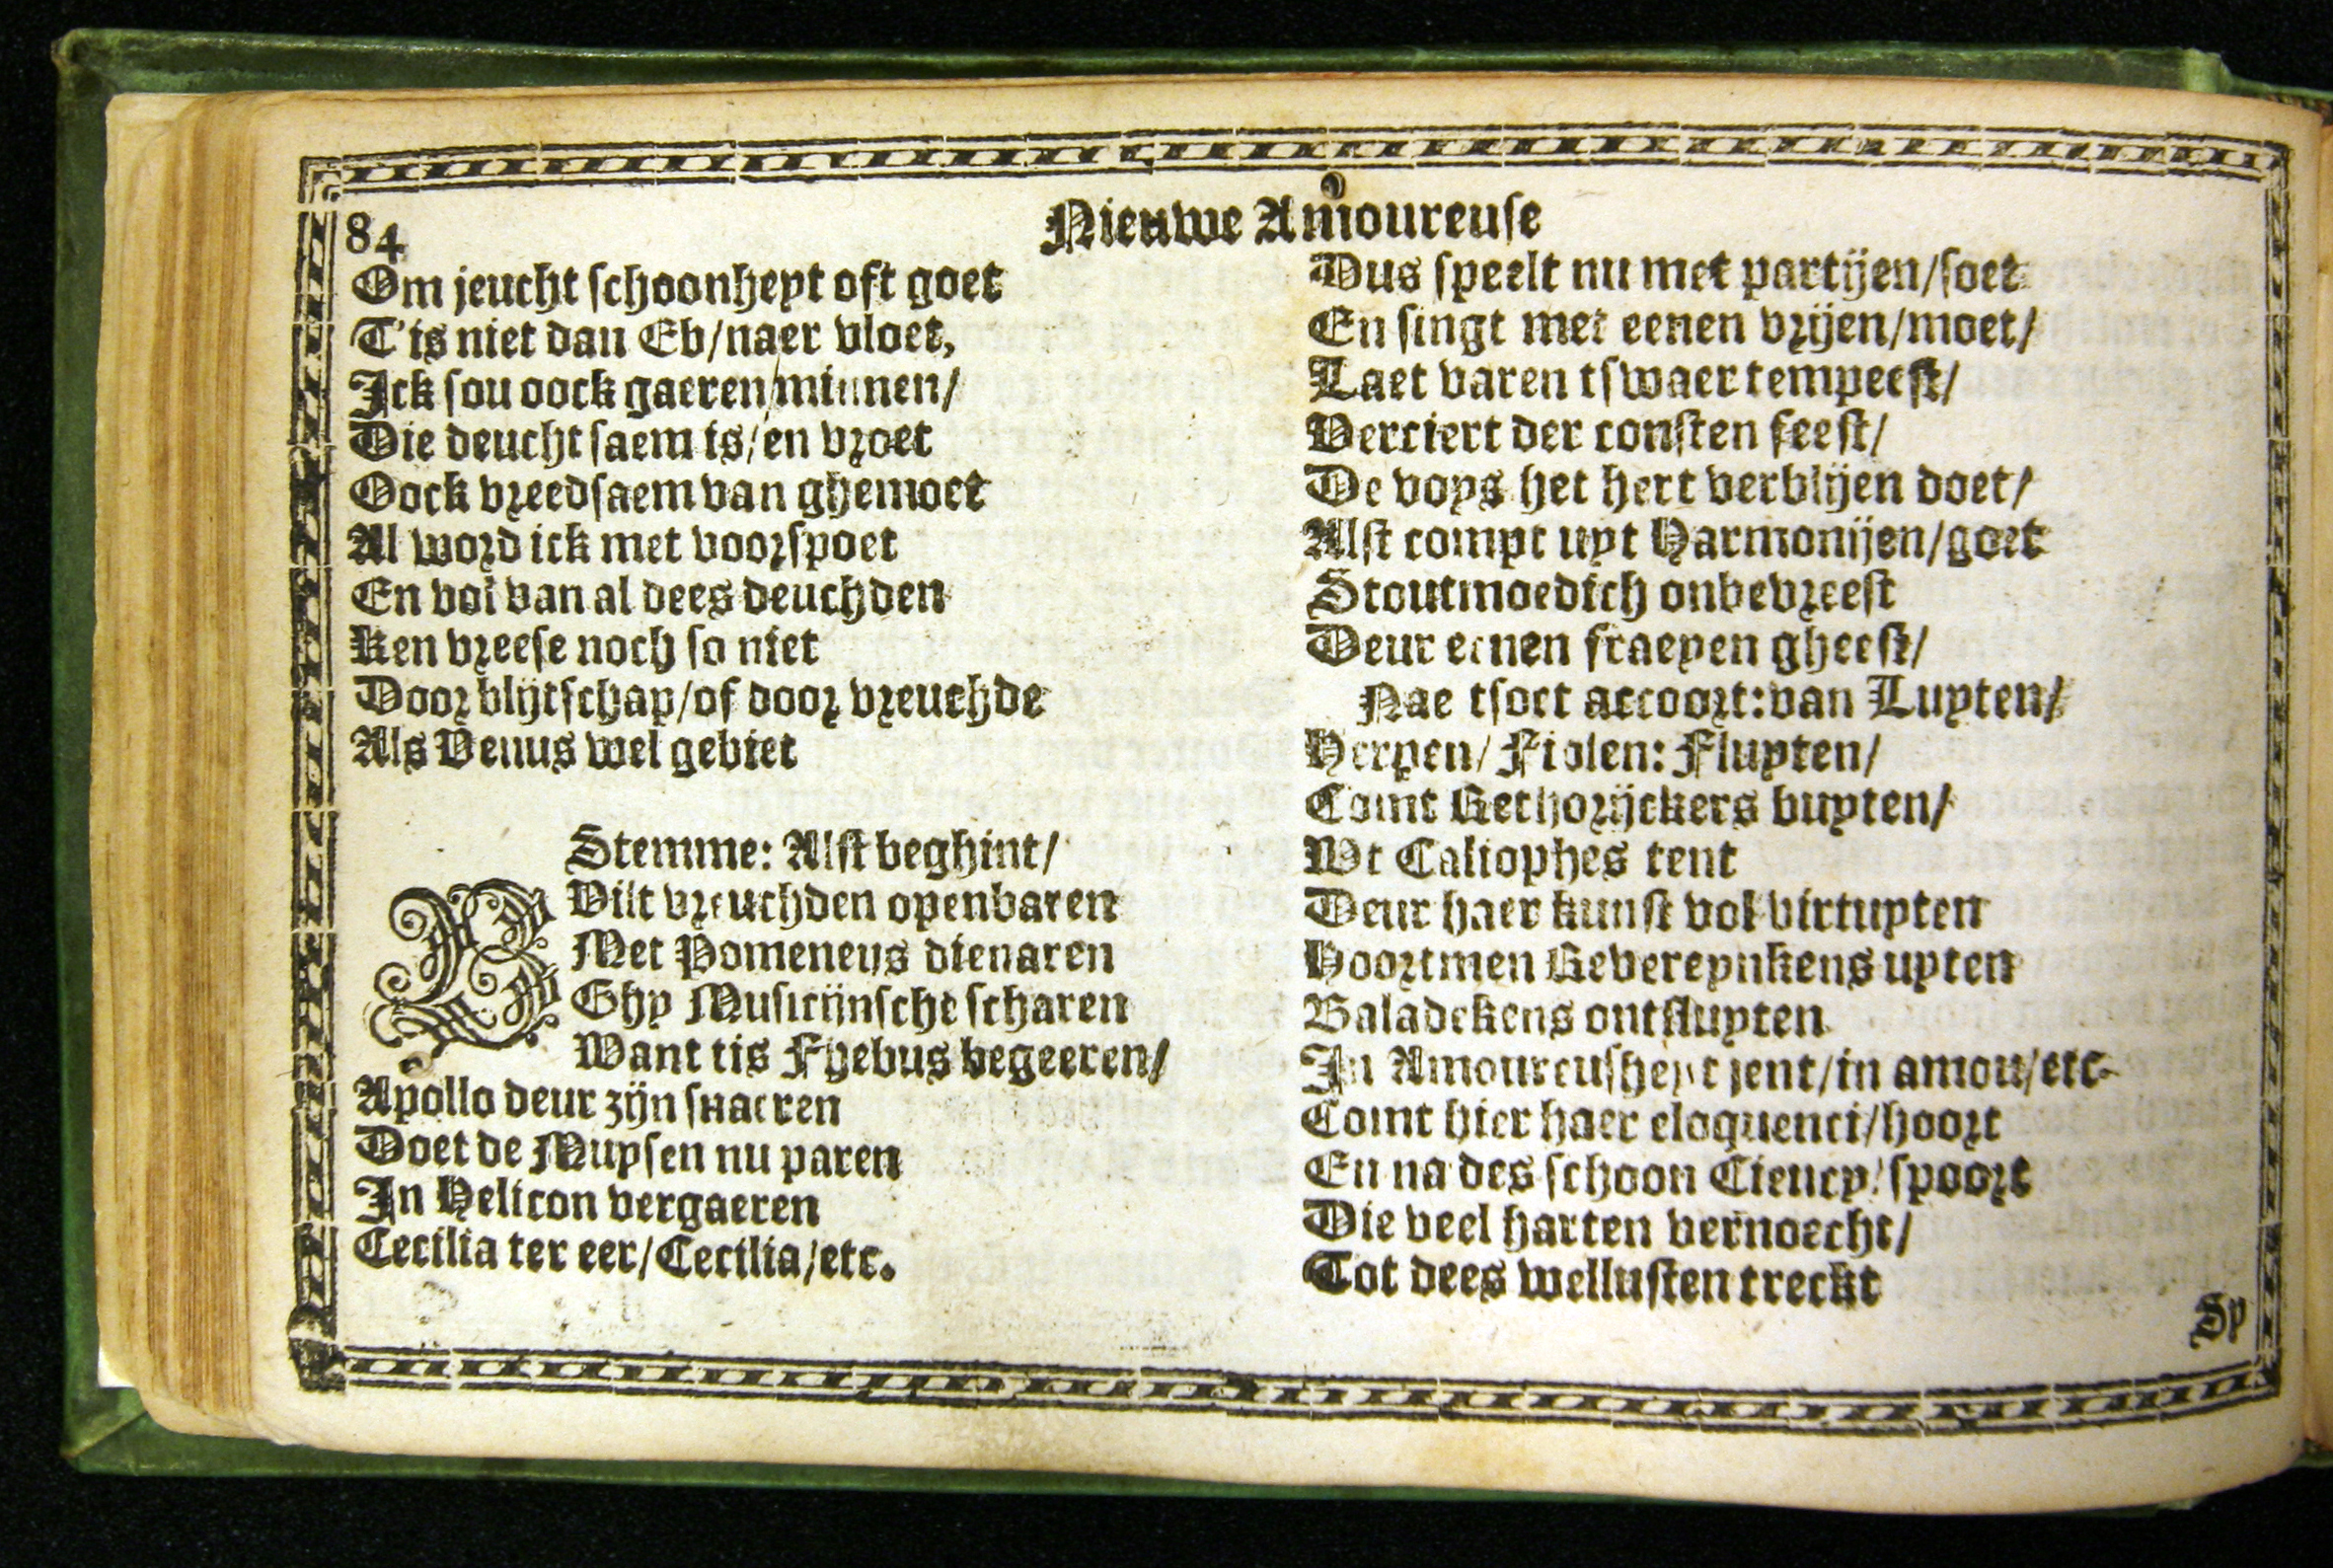 84
Nieuwe Amoureuse
Om jeucht schoonheyt oft goet
T'is niet dan Eb/naer vloet,
Ick sou oock gaeren/minnen/
Die deuchtsaem is/en vroet
Oock vreedsaem van ghemoet
Al word ick met voorspoet
En vol van al dees deuchden
Ken vreese noch so niet
Door blijtschap/of door vreuchde
Als Venus wel gebiet
Stemme: Alst beghint/
Wilt vreuchden openbaren
Met Pomeneus dienaren
Ghy Musicijnsche scharen
Want tis Fhebus begeeren/
Apollo deur zijn snaeren
Doet de Muysen nu paren
In Helicon vergaeren
Cecilia ter eer/Cecilia/etc.
Dus speelt nu met partijen/soet
En singt met eenen vrijen/moet/
Laet varen tswaer tempeest/
Verciert der consten feest/
De voys het hert verblijen doet/
Alst compt uyt Harmonijen/goet
Stoutmoedich onbevreest
Deur eenen fraeyen gheest/
Nae tsoet accoort: van Luyten/
Herpen/Fiolen: Fluyten/
Comt Rethorijckers buyten/
Wt Caliophes tent
Deur haer kunst vol virtuyten
Hoortmen Revereynkens uyten
Baladekens ontsluyten
In Amoureusheyt jent/in amou/etc-
Comt hier haer eloquenci/hoort
En na des schoon Ciency/spoort
Die veel harten vernoecht/
Tot dees wellusten treckt
Sy